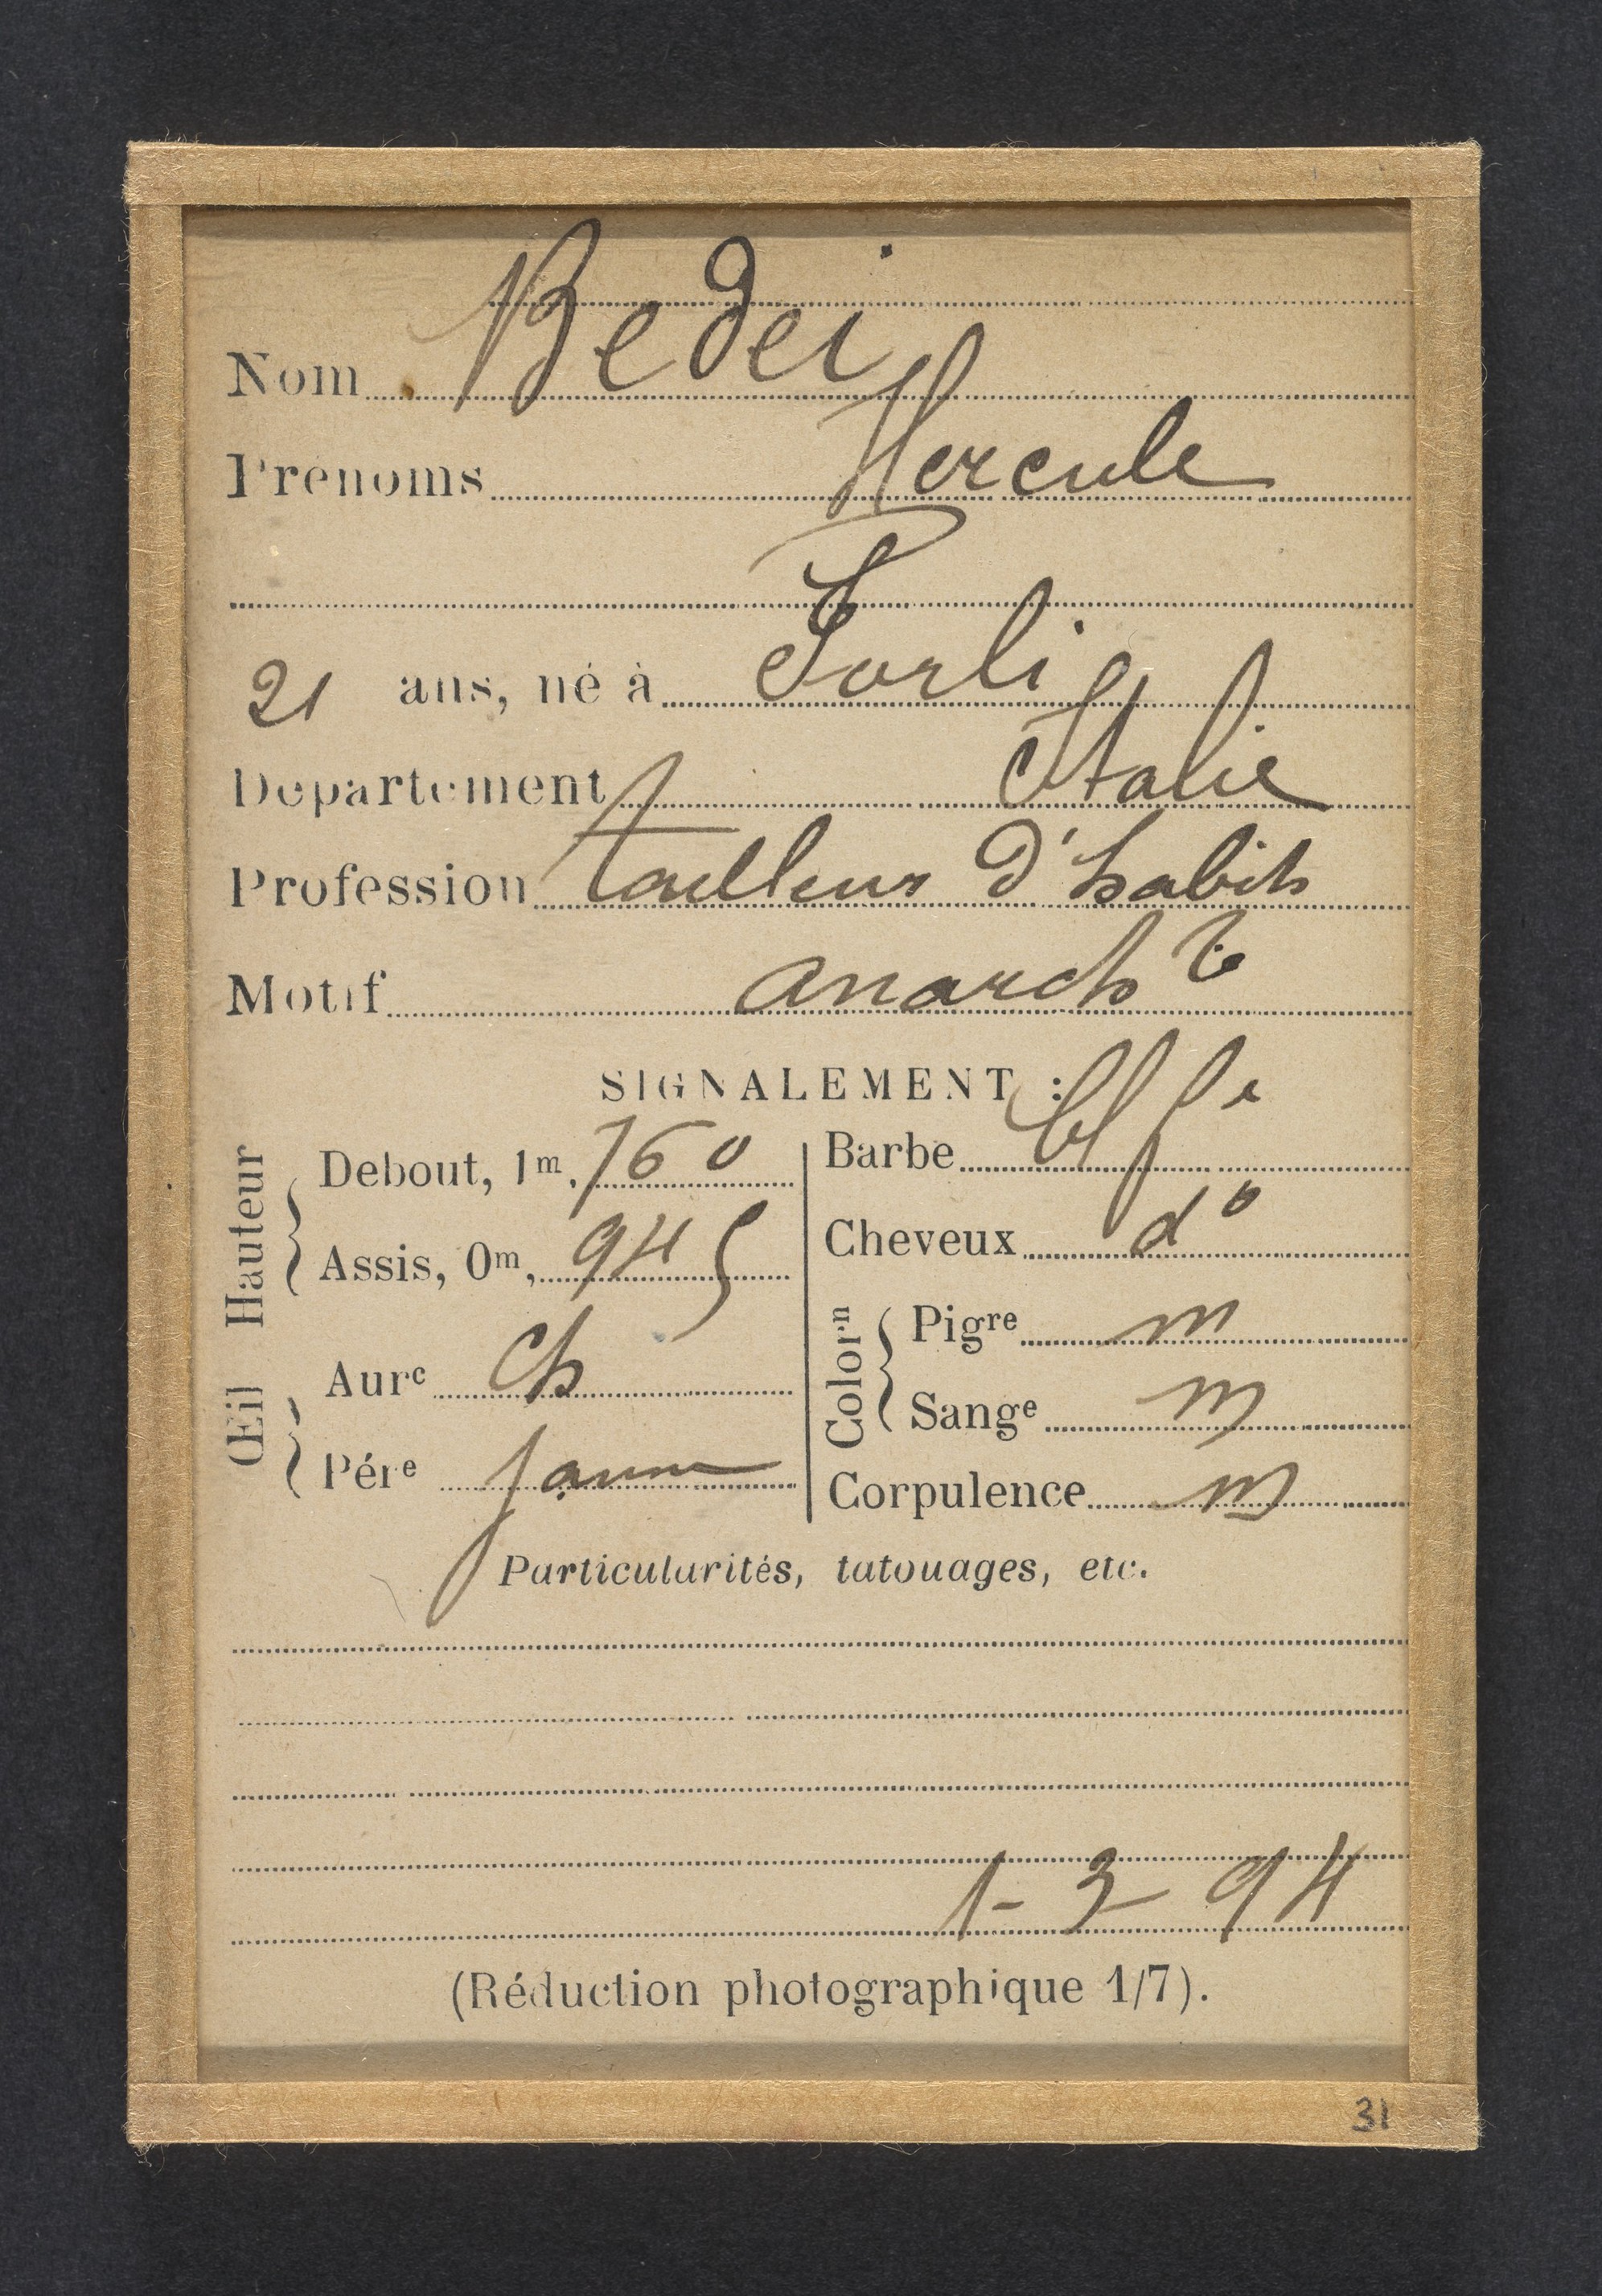 Nom Bedei
Prénoms Hercule
21 ans, né à Forli
Département Italie
Profession tailleur d'habits
Motif anarchte
SIGNALEMENT :
Hauteur
Debout, 1m, 760
Assis, 0m, 945
Œil
Aure ch
Pére jaune
Barbe
Cheveux do
Colorn
Pigre m
Sange m
Corpulence m
Particularités, tatouages, etc.
1-3 94
(Réduction photographique 1/7).
31